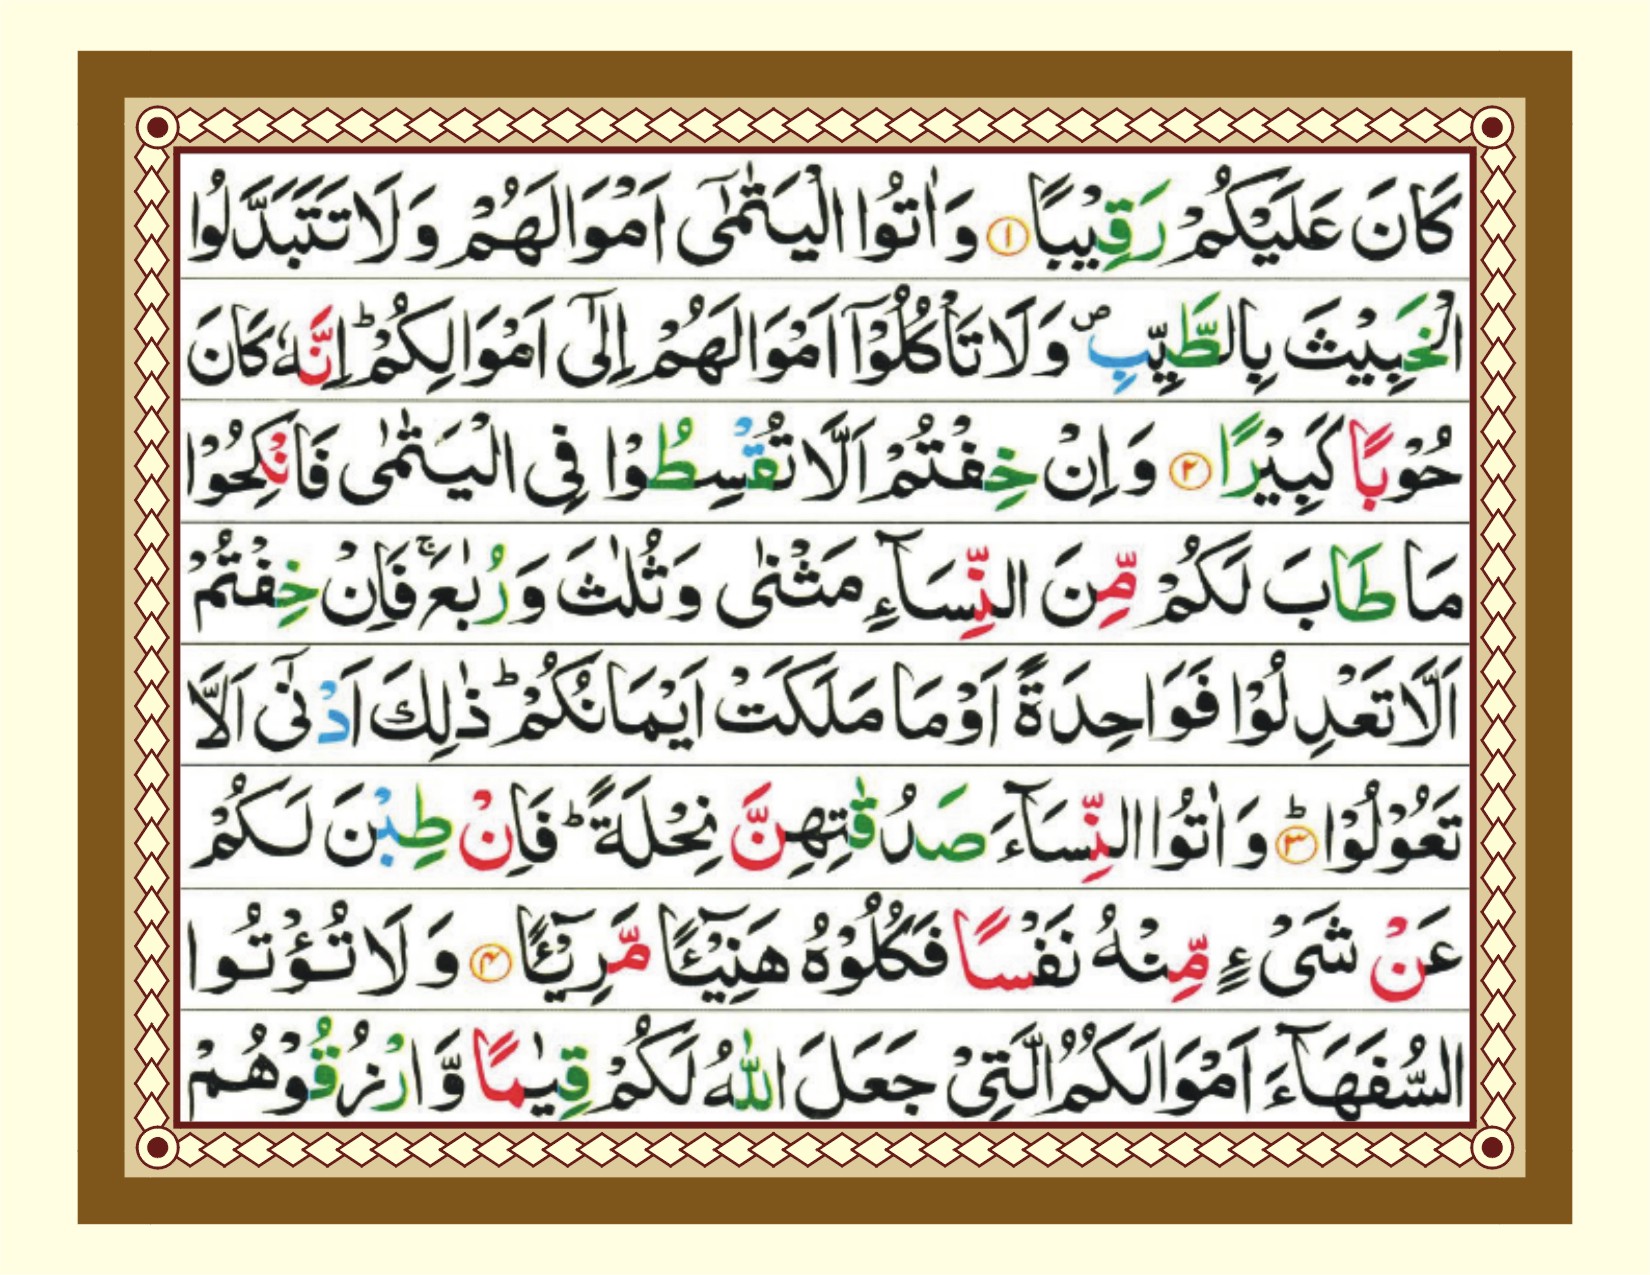 كَانَ عَلَيْكُمْ رَقِيْبًا ۝۱ وَاٰتُوا الْيَتٰمٰٓى اَمْوَالَهُمْ وَلَا تَتَبَدَّلُوا
الْخَبِيْثَ بِالطَّيِّبِ ۪ وَلَا تَاْكُلُوْٓا اَمْوَالَهُمْ اِلٰٓى اَمْوَالِكُمْ ؕ اِنَّهٗ كَانَ
حُوْبًا كَبِيْرًا ۝۲ وَاِنْ خِفْتُمْ اَلَّا تُقْسِطُوْا فِى الْيَتٰمٰى فَانْكِحُوْا
مَا طَابَ لَكُمْ مِّنَ النِّسَآءِ مَثْنٰى وَثُلٰثَ وَرُبٰعَ ۚ فَاِنْ خِفْتُمْ
اَلَّا تَعْدِلُوْا فَوَاحِدَةً اَوْ مَا مَلَكَتْ اَيْمَانُكُمْ ؕ ذٰلِكَ اَدْنٰٓى اَلَّا
تَعُوْلُوْا ۝۳ؕ وَاٰتُوا النِّسَآءَ صَدُقٰتِهِنَّ نِحْلَةً ؕ فَاِنْ طِبْنَ لَكُمْ
عَنْ شَىْءٍ مِّنْهُ نَفْسًا فَكُلُوْهُ هَنِيْٓئًا مَّرِيْٓئًا ۝۴ وَلَا تُؤْتُوا
السُّفَهَآءَ اَمْوَالَكُمُ الَّتِىْ جَعَلَ اللّٰهُ لَكُمْ قِيٰمًا وَّارْزُقُوْهُمْ